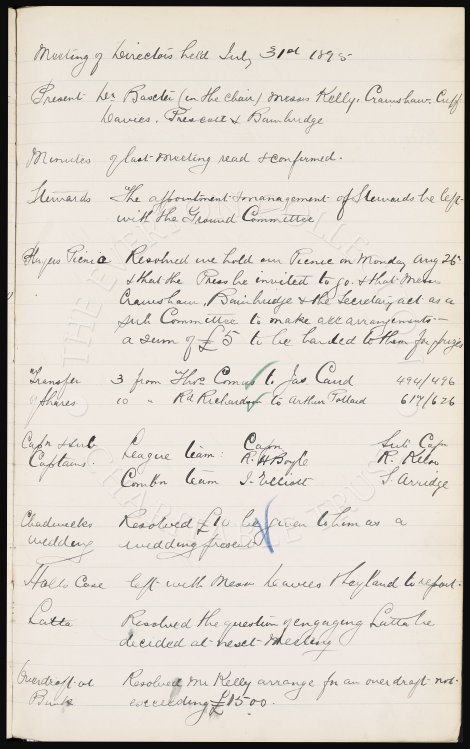 Meeting of Directors held July 31st 1895
Present Dr Baxter (in the chair) Messrs Kelly, Crawshaw, Cuff
Davies, Prescott & Bainbridge
Minutes of last meeting read & confirmed.
Stewards The appointment & management of Stewards be left
with the Ground Committee
Players Picnic Resolved we hold our Picnic on Monday Aug 26th
& that the Press be invited to go. & that Messrs
Crawshaw, Bainbridge & the Secretary act as a
sub Committee to make all arrangements —
a sum of £5 to be handed to them for prizes
Transfer 3 from Thos to Jas Caird 494/496
of Shares 10 " Rd Richardson to Arthur Pollard 617/626
Capn & sub League team: Capn Sub Capn
Captains. R. H Boyle R. Kelso
Combn team J. Elliott S. Arridge
Chadwicks Resolved £10 be given to him as a
wedding wedding present
Holts Case left with Messrs Davies & Leyland to report.
Latta Resolved the question of engaging Latta be
decided at next meeting
Overdraft at Resolved Mr Kelly arrange for an overdraft not
Bank exceeding £1500.
THE EVERTON
CHARITABLE TRUST